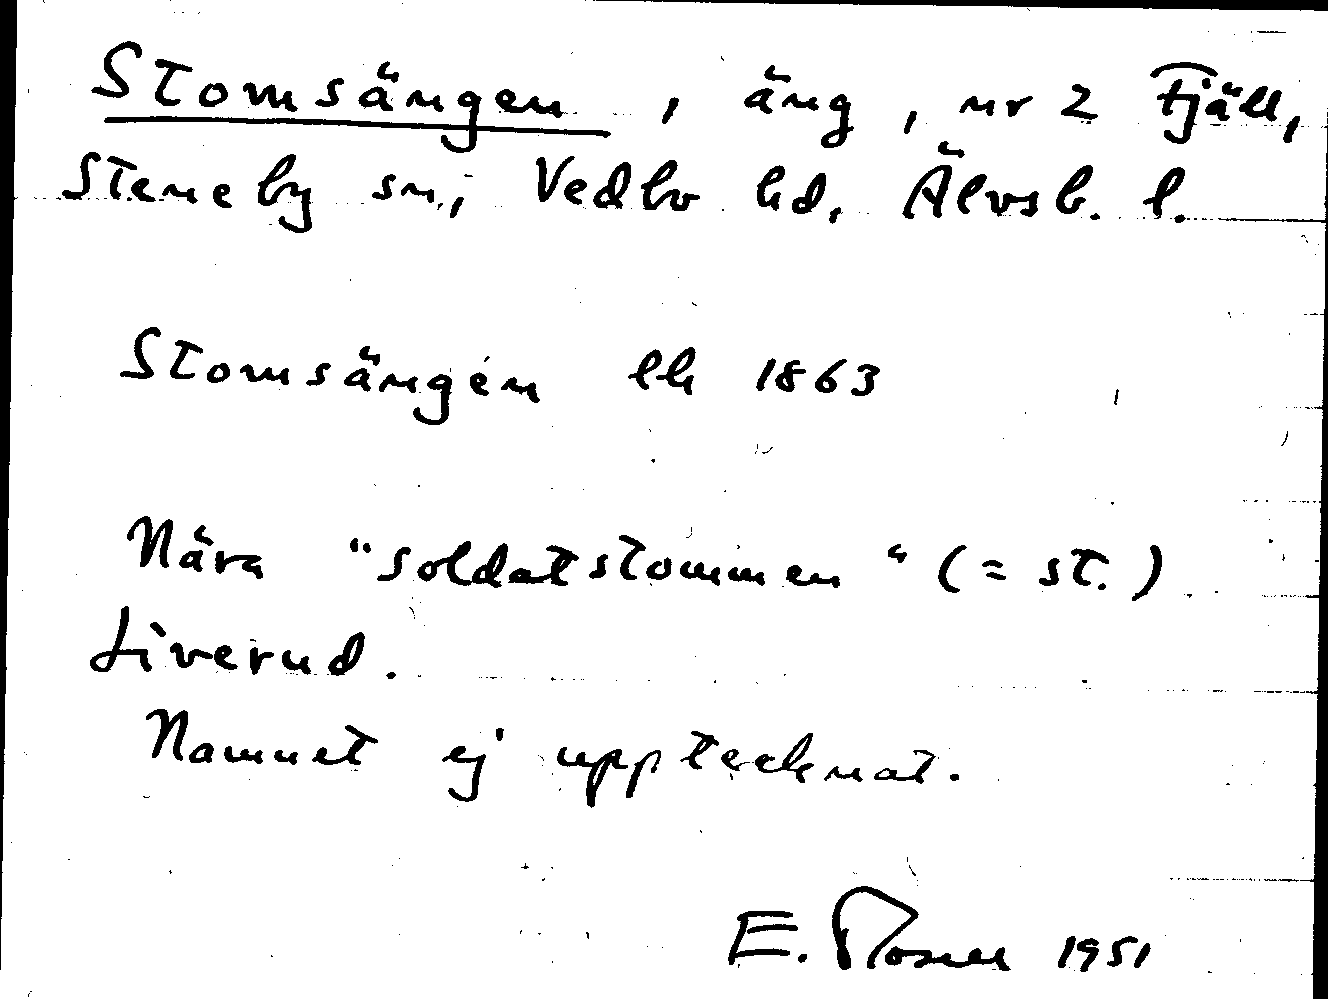 Stomsängen, äng, nr 2 Fjäll,
Steneby sn, Vedbo hd, Älvsb. l.
Stomsängen lh 1863
Nära "soldatstommen" (= st.)
Liverud.
Namnet ej upptecknat.
E. Rosell 1951